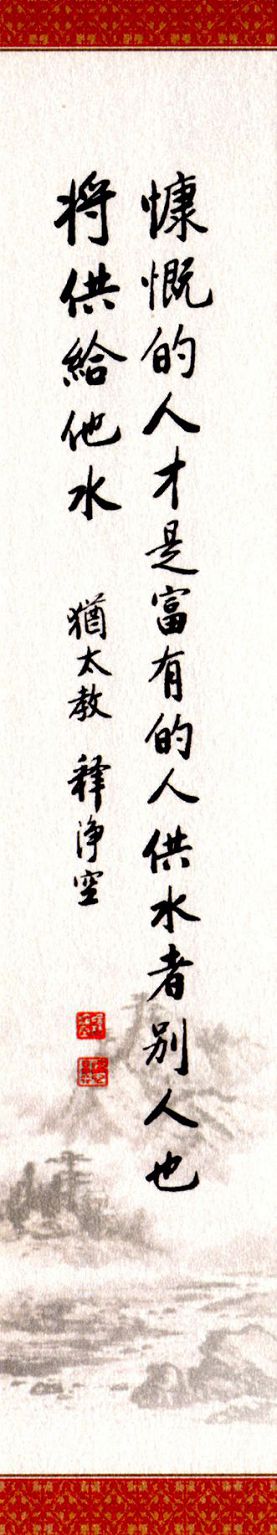 慷慨的人才是富有的人供水者別人也
将供給他水 猶太教 釋淨空